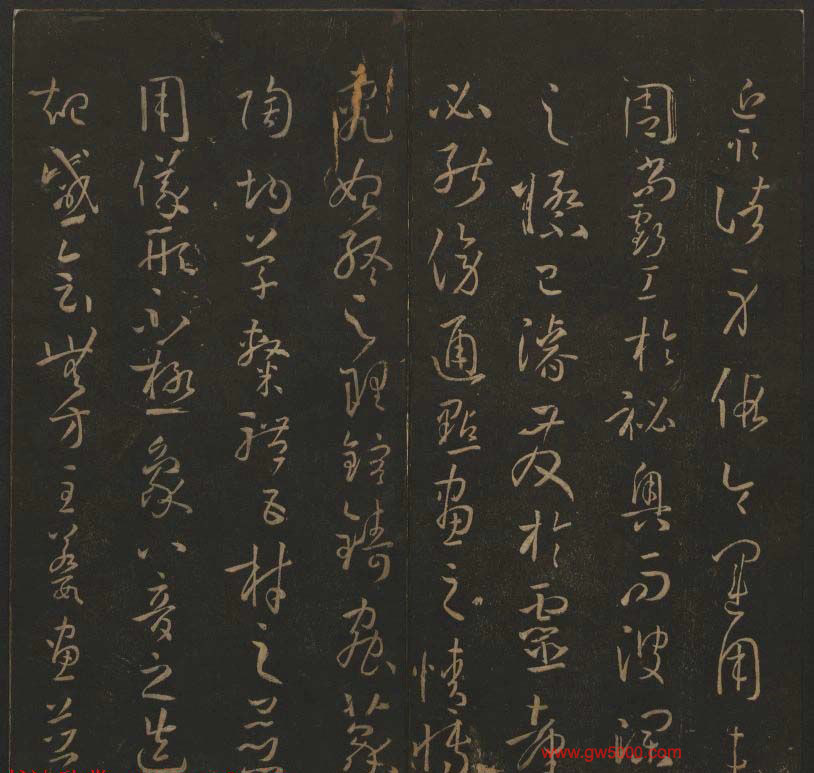 近取諸身假令運用未
周尚虧工於祕奧而波瀾
之際已濬發於靈臺
必能傍通點畫之情博
究始終之理鎔鑄蟲篆
陶均草隸體五材之並
用儀形不極象八音之迭
起感會無方至若數畫並
www.gw5000.com